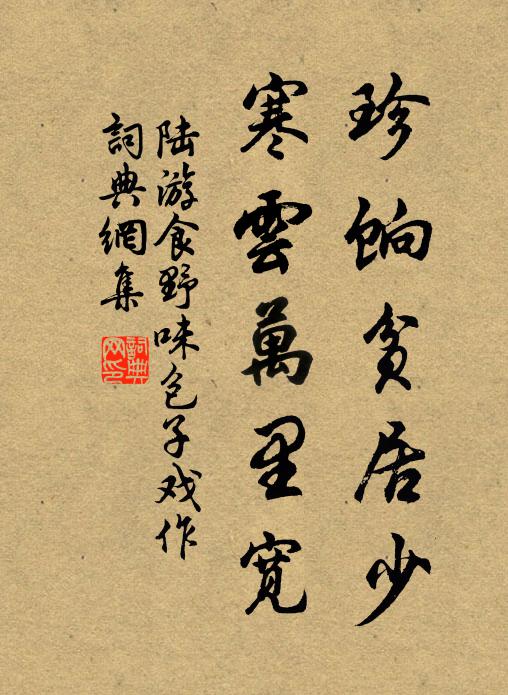 珍餉貧居少
寒雲萬里寬
陆游食野味包子戏作
詞典網集
詞典
网印